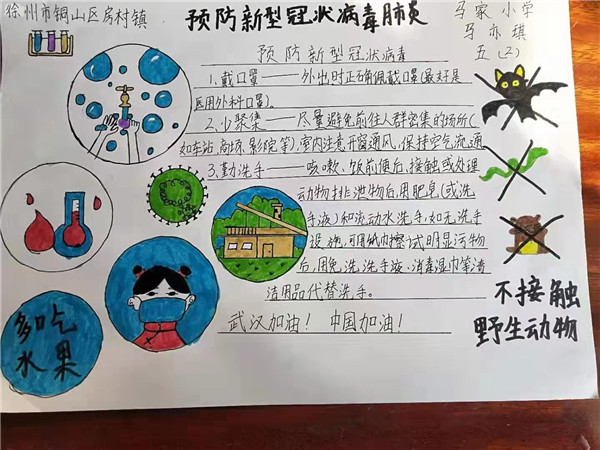 徐州市铜山区房村镇
预防新型冠状病毒肺炎
马家小学
马亦琪
五(2)
预防新型冠状病毒
1.戴口罩——外出时正确佩戴口罩(最好是
医用外科口罩)。
2.少聚集——尽量避免前往人群密集的场所(
如车站,商场,影院等),室内注意开窗通风,保持空气流通
3.勤洗手——咳嗽、饭前便后,接触或处理
动物排泄物后,用肥皂(或洗
手液)和流动水洗手,如无洗手
设施,可用纸巾擦拭明显污物
后,用免洗洗手液、消毒湿巾等清
洁用品代替洗手。
武汉加油!中国加油!
多吃
水果
不接触
野生动物